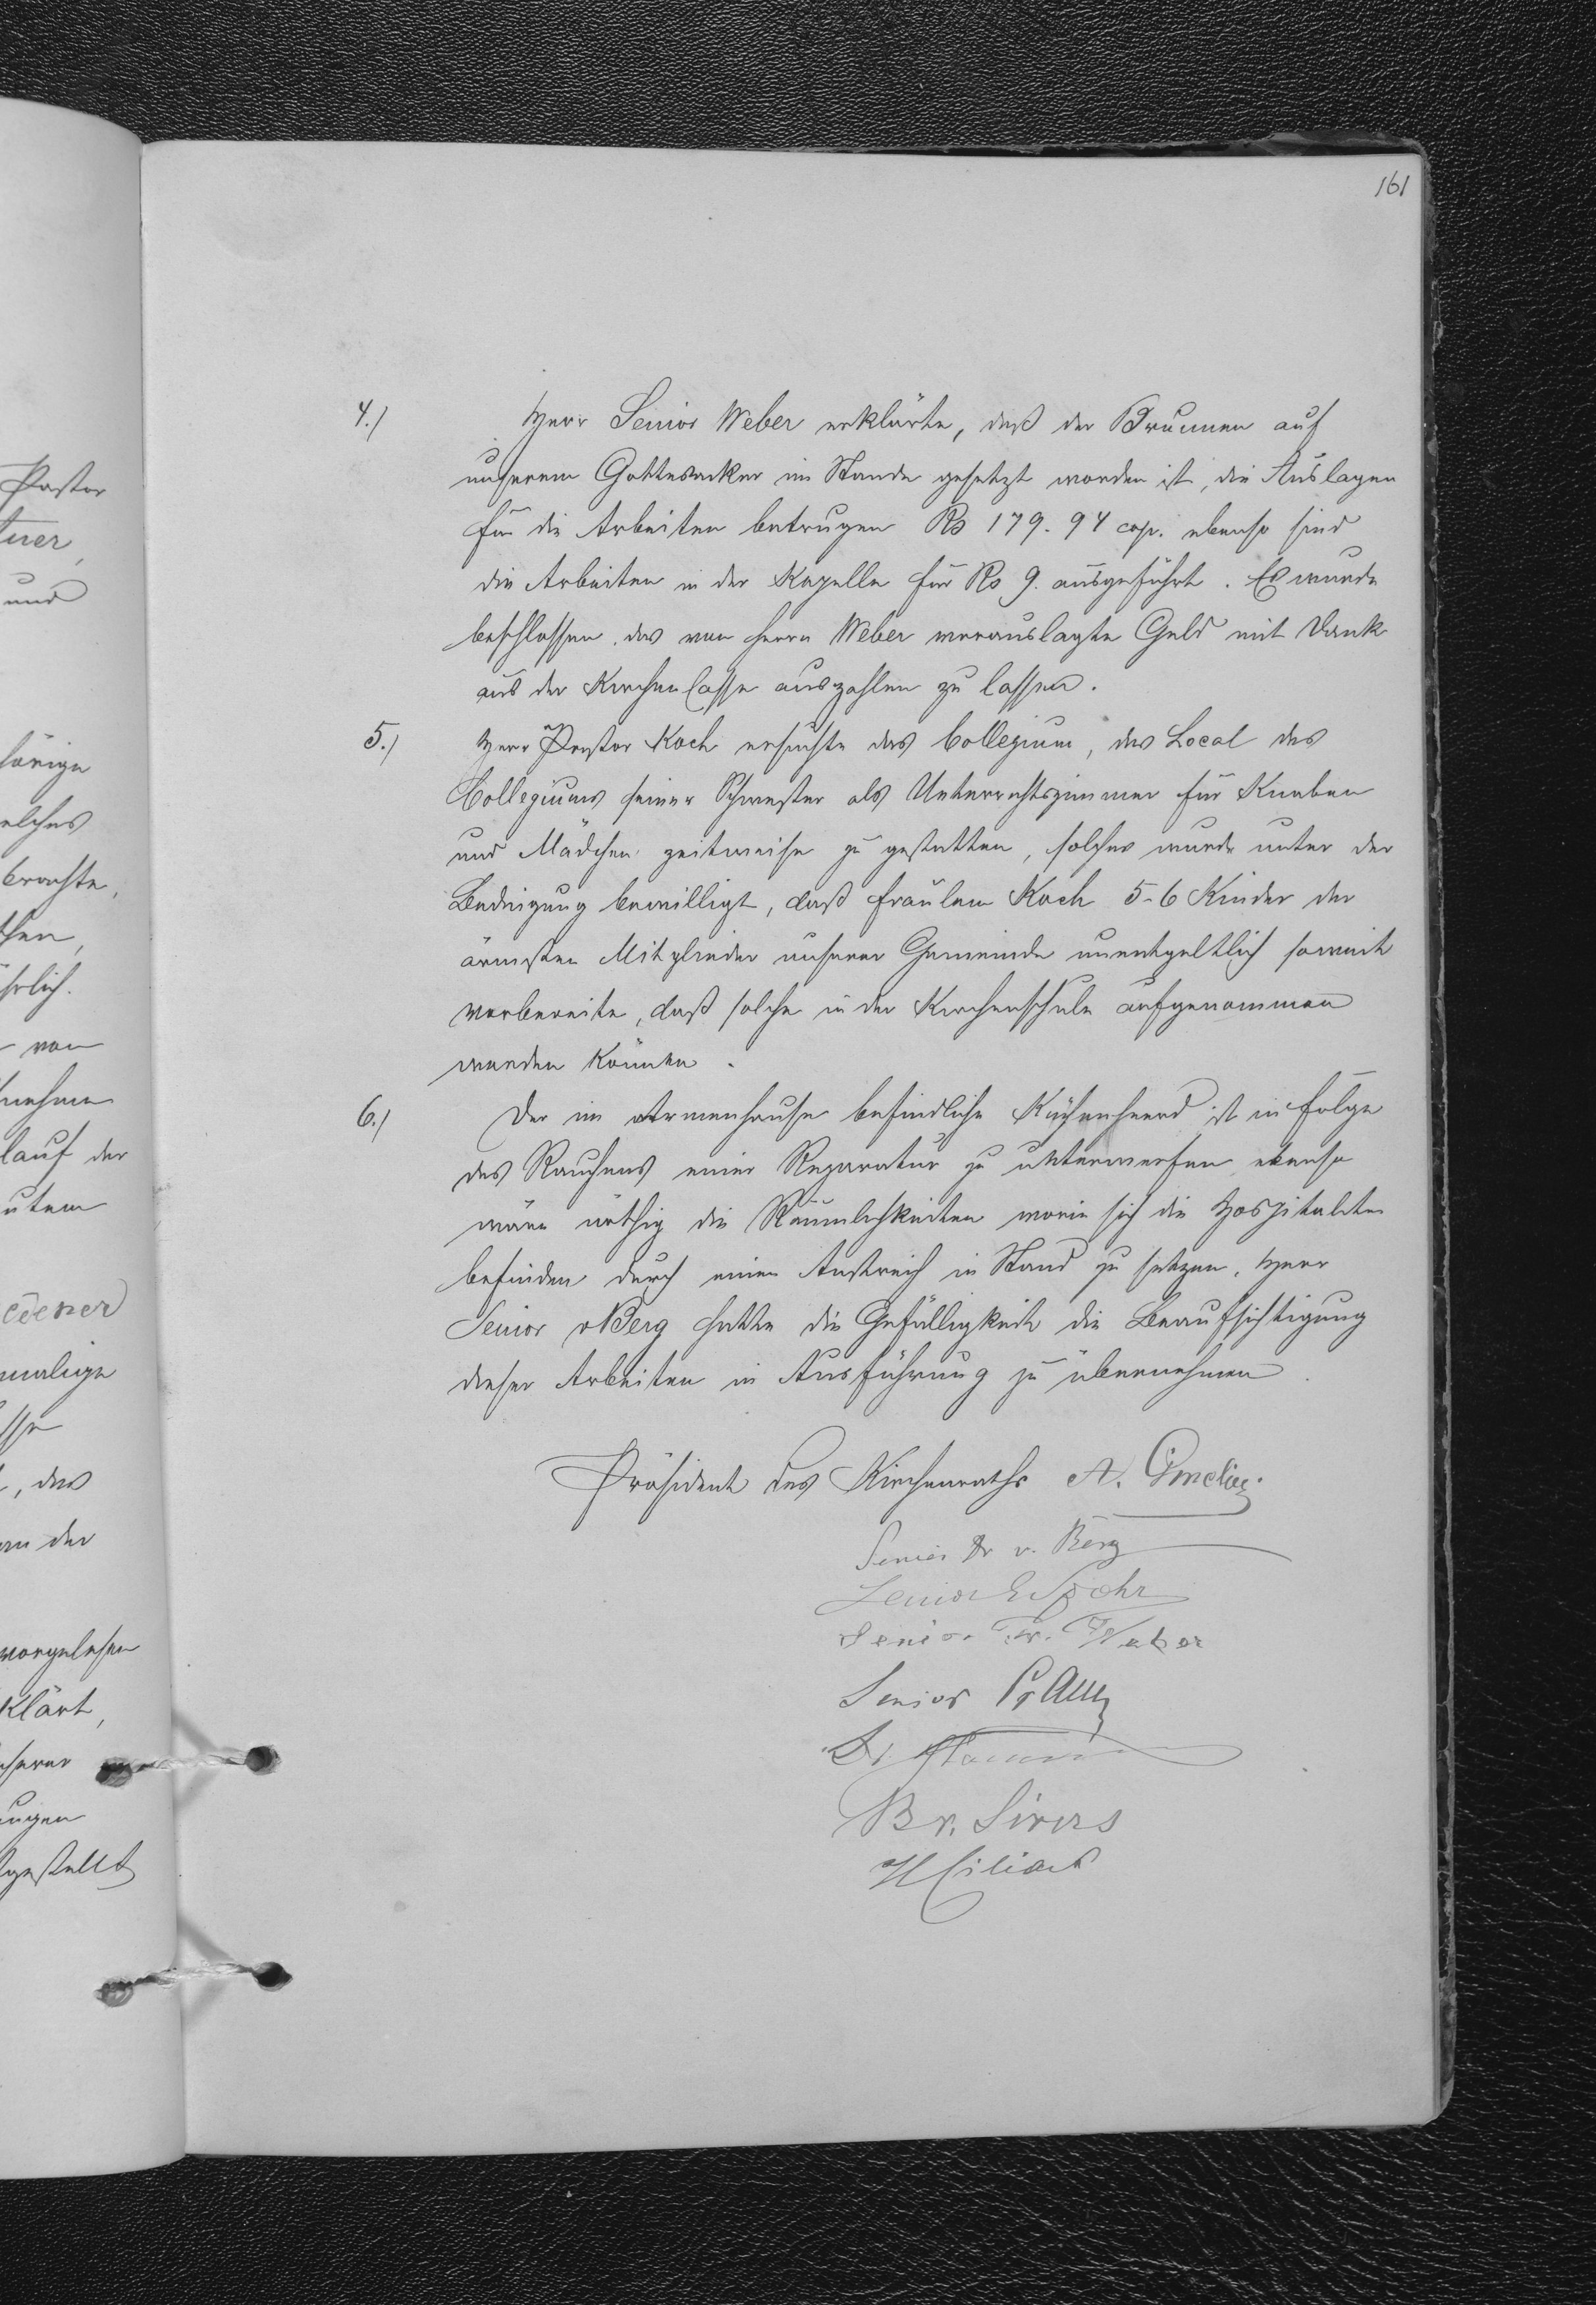 161
4.) Herr Senior Weber erklärte, daß der Brunnen auf
unserem Gottesacker im Stande gesetzt worden ist, die Auslagen
für die Arbeiten betrugen Rs 179. 94 cop. ebenso sind
die Arbeiten in der Kapelle für Rs 9. ausgeführt. Es wurde
beschlossen das von Herrn Weber verauslagte Geld mit Dank
aus der Kirchen Casse auszahlen zu lassen.
5.) Herr Pastor Koch ersuchte das Collegium, das Local des
Collegiums seiner Schwester als Unterrichtszimmer für Knaben
und Mädchen zeitweise zu gestatten, solches wurde unter der
Bedingung bewilligt, daß Fräulein Koch 5-6 Kinder der
ärmsten Mitglieder unserer Gemeinde unentgeltlich soweit
vorbereite, daß solche in der Kirchenschule aufgenommen
werden können.
6.) Der im Armenhause befindliche Küchenheerd ist in Folge
des Rauchens einer Reparatur zu unterwerfen ebenso
wäre nöthig die Räumlichkeiten worin sich die Hospitaliten
befinden durch einen Anstrich in Stand zu setzen, Herr
Senior v Berg hatte die Gefälligkeit die Beaufsichtigung
dieser Arbeiten in Ausführung zu übernehmen.
Präsident des Kirchenraths A. Gmelin
Senior Dr v. Berg
Senior E Spohr
Senior Fr. Weber
Senior
Dr
B v. Sivers
Pastor
und
hörige
welches
brachte,
von
lauf der
, das
an der
vorgelesen
klärt,
unserer
gestellt